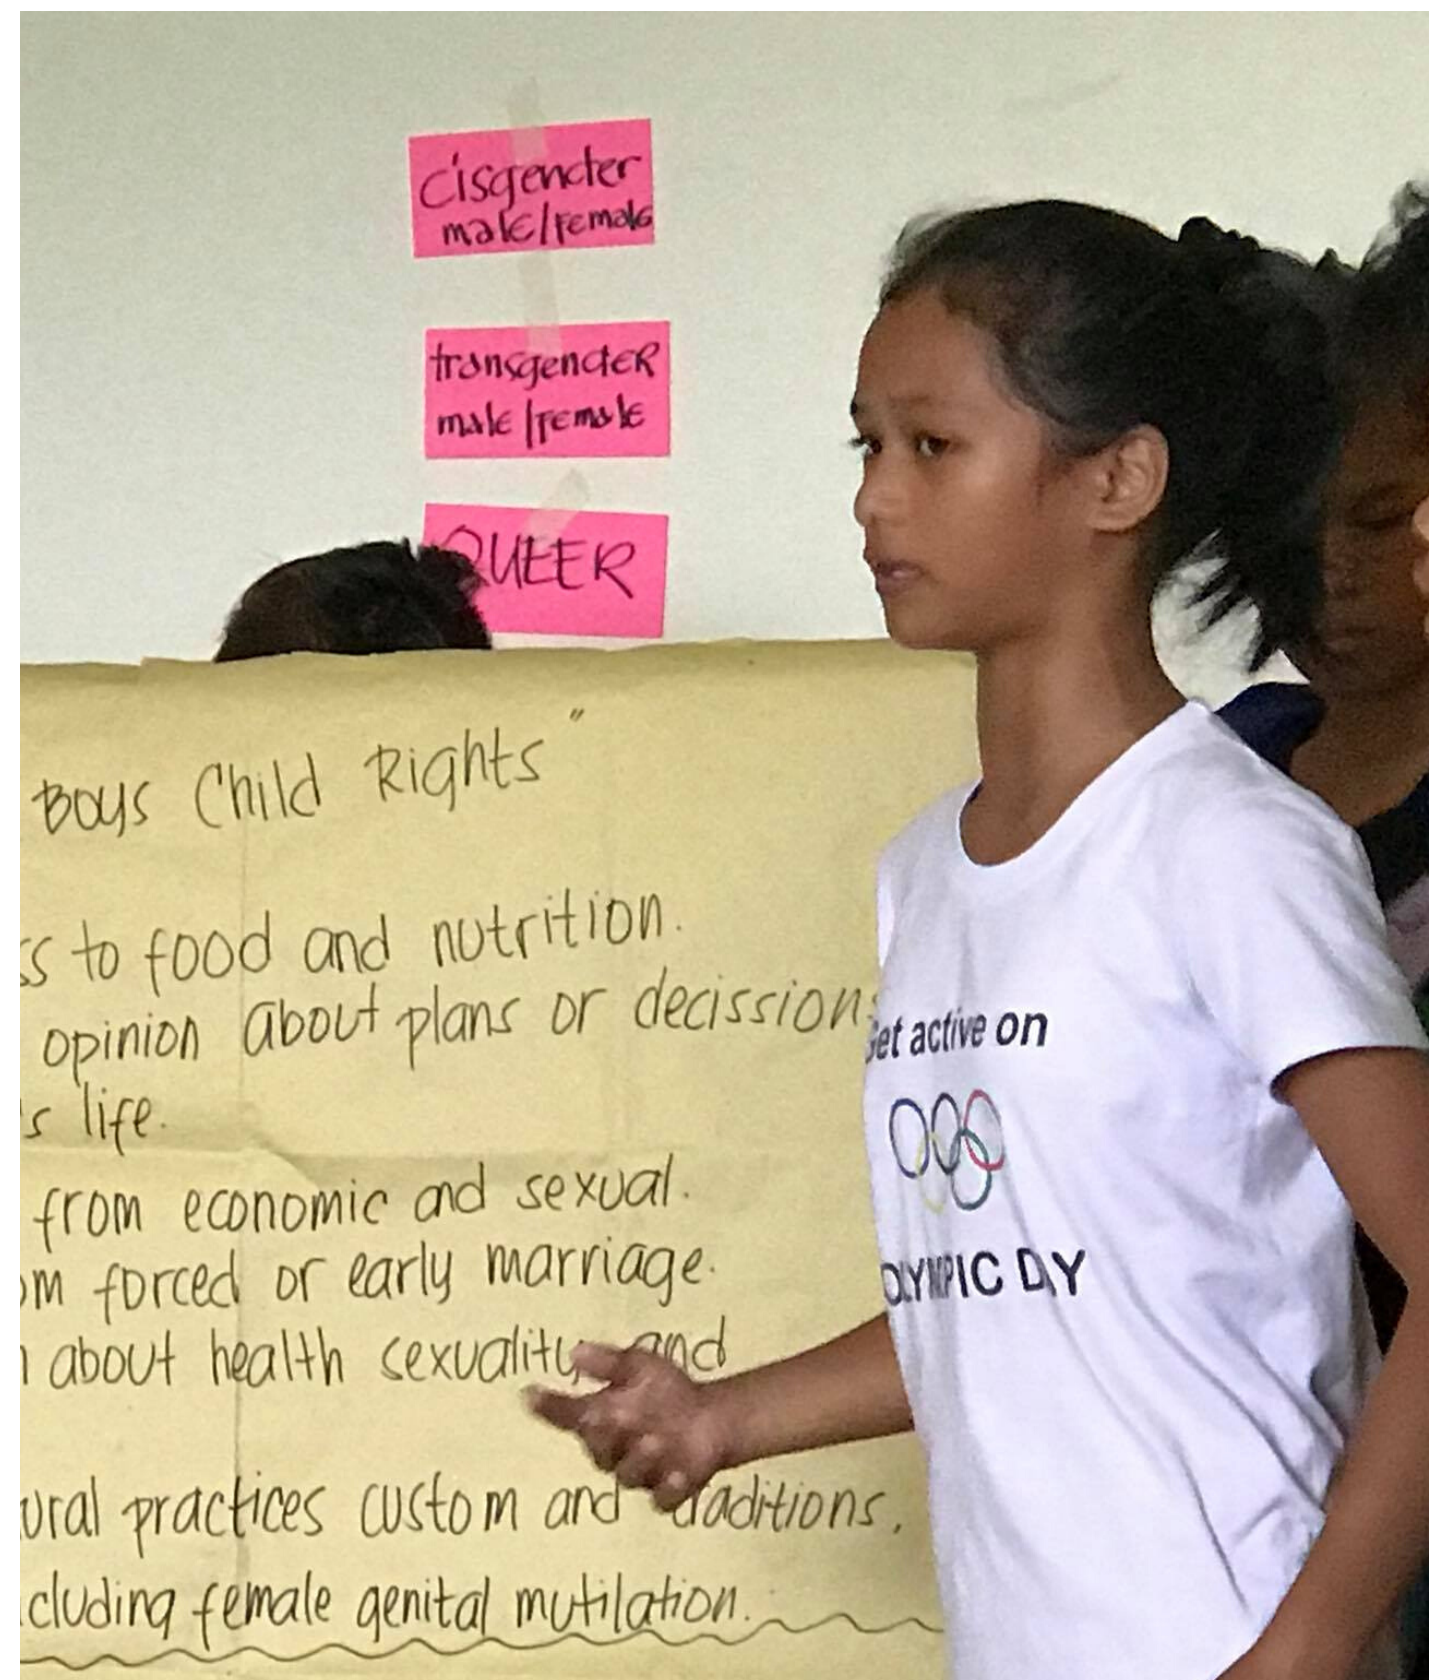 cisgender
male/female
transgender
male/female
QUEER
Boys Child Rights"
to food and nutrition.
opinion about plans or decission
life.
from economic and sexual.
forced or early marriage.
about health sexuality and
practices custom and traditions,
female genital mutilation.
Get active on
OLYMPIC DAY